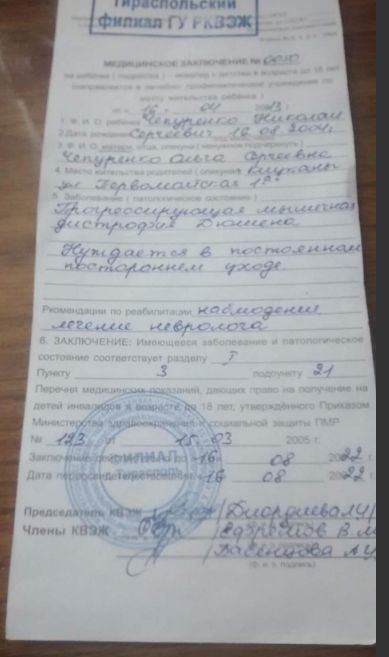 Тираспольский
филиал ГУ РКВЭЖ
МЕДИЦИНСКОЕ ЗАКЛЮЧЕНИЕ №
на ребенка ( подростка ) - инвалида с детства в возрасте до 16 лет
(направляется в лечебно- профилактическое учреждение по
месту жительства ребенка )
от « 16 » 04
1. Ф. И. О. ребенка Чепуренко Николай
2. Дата рождения Сергеевич 16.08.2004г.
3. Ф. И. О. матери, отца, опекуна ( ненужное подчеркнуть )
Чепуренко Ольга Сергеевна
4. Место жительства родителей ( опекуна )
ул Первомайская
5. Заболевание ( патологическое состояние )
Прогрессирующая мышечная
дистрофия Дюшена
Нуждается в постоянном
постороннем уходе
Рекомендации по реабилитации наблюдение
лечение невролога
6. ЗАКЛЮЧЕНИЕ: Имеющееся заболевание и патологическое
состояние соответствует разделу I
Пункту 3 подпункту 21
Перечня медицинских показаний, дающих право на получение на
детей инвалидов в возрасте до 18 лет, утверждённого Приказом
Министерства здравоохранения и социальной защиты ПМР
№ 123 от 15.03 2005 г.
Заключение 16 08 2022 г.
Дата переосвидетельствования 16 08 2022 г.
ФИЛИАЛ
ТИРАСПОЛЬ
Председатель КВЭЖ
Члены КВЭЖ Ефремов В.М
(ф. и. о. подпись)